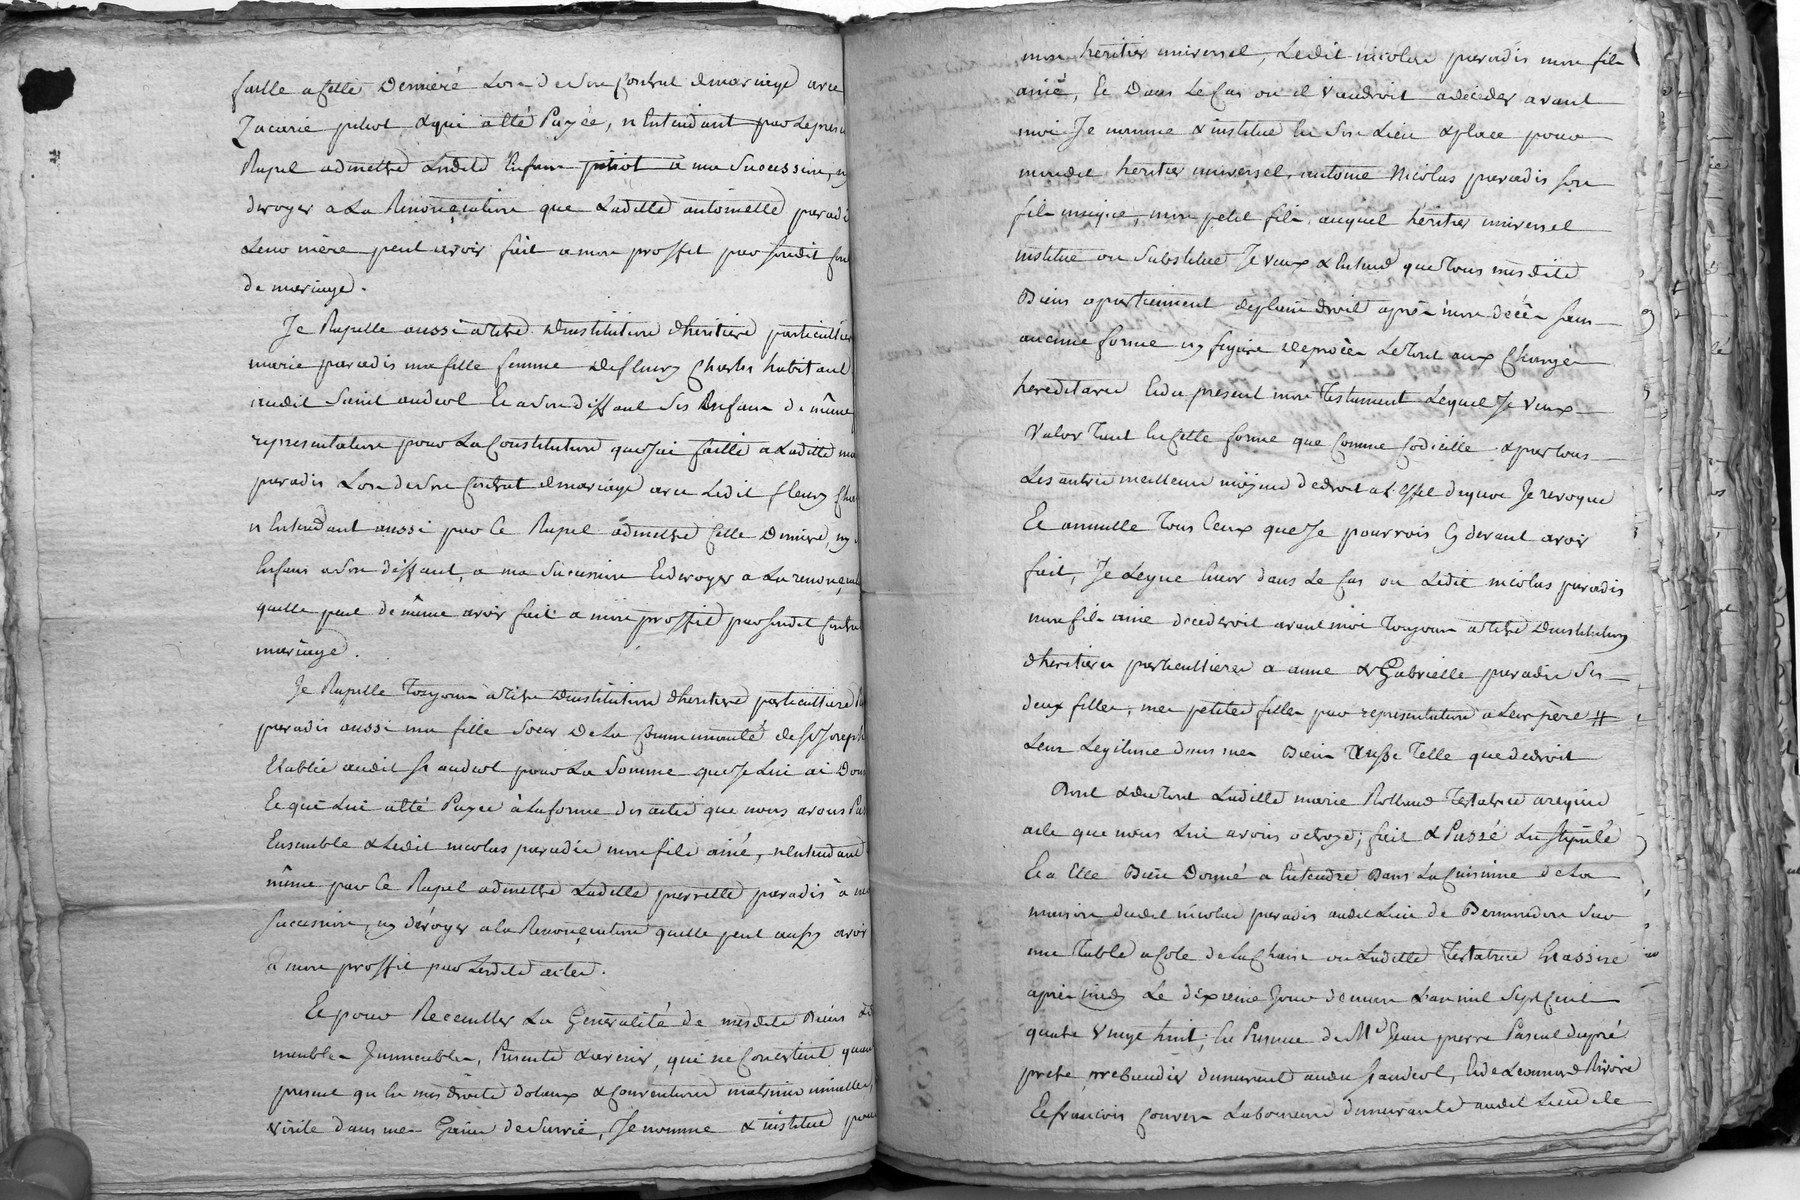 faitte a cette Derniere Lors de son Contrat de mariage avec
Zacarie pitiot, & qui a été Payée, n'Entendant par Le présent
Rapel admettre Lesdits Enfans pitiot a ma Sucession, ny
deroger a La Renonçiation que Laditte antoinette paradi
Leur mère peut avoir fait a mon proffit par Sondit Con
de mariage.
Je Rapelle aussi a titre D'institution d'heritiere particulliere
marie paradis ma fille femme de fleury Charles habitant
audit Saint andeol Et a Son deffaut Ses Enfans de même
representation pour La Constitution que J'ai faitte a Laditte ma
paradis Lors de Son Contrat de mariage avec Ledit fleury Cha
n'Entendant aussi par Ce Rapel admettre Cette Derniere, ny
Enfans a Son deffaut, a ma Sucession Et deroger a La renonçiat
quelle peut de même avoir fait a mon proffit par Sondit Contra
mariage.
Je Rapelle Toujours a titre D'institution d'heritiere particulliere
paradis aussi ma fille Soeur De La Communauté de St Joseph
Etablie audit St andeol pour La Somme que Je Lui ai Don
Et qui Lui a été Payée à La forme des actes que nous avons Pas
Ensemble & Ledit nicolas paradis mon fils ainé, n'Entendant
même par Ce Rapel admettre Laditte pierrette paradis à ma
Sucession, ny déroger a La Renonçiation quelle peut aussy avoir
a mon proffit par Lesdits actes.
Et pour Receuiller La Généralité de mesdits Biens
meubles Jmmeubles, Présents & avenir, qui ne Consistent quan
present qu'En mes droits dotaux & Conventions matrimonnialles,
dans mes Gains de Survie, Je nomme & institue pour
mon heritier universel, Ledit nicolas paradis mon fils
ainé, Et Dans Le Cas ou il viendroit a déceder avant
moi Je nomme & institue En Son Lieu & place pour
mondit heritier universel, antoine Nicolas paradis Son
fils unique, mon petit fils, auquel heritier universel
institué ou Substitué Je veux & Entend que Tous mesdits
Biens apartiennent de plain droit après mon décès Sans
aucune forme ny figure de procès Le tout aux Charges
hereditaires Et du present mon Testament Lequel Je veux
valoir Tant En Cette forme que Comme Codicille & par tous
Les autres meilleurs moyens de droit a L'Effet de quoi Je revoque
Et annulle Tous Ceux que Je pourrois Cy devant avoir
fait, Je Legue Encor dans Le Cas ou Ledit nicolas paradis
mon fils ainé décederoit avant moi Toujours a titre D'institution
d'heritieres particullieres a anne & Gabrielle paradis Ses
deux filles, mes petites filles par representation a Leur père #
Leur Legitime dans mes Biens Telle que de droit
Dont & du tout Laditte marie Rolland Testatrice a requis
acte que nous Lui avons octroyé; fait & Passé Lu Stipulé
Et a Elle Bien Donné a Entendre Dans La Cuisine de La
maison dudit nicolas paradis audit Lieu de Bemmidon Sur
une Table a Coté de La Chaise ou Laditte Testatrice Est assise
après midy Le dixieme Jour de mars L'an mil Sept Cent
quatre vingt huit; En Presence de Mr Jean pierre Pascal dupré
pretre prebendier demeurant audit St andeol, Et de Leonnard Riviore
Et françois Convers Laboureurs demeurants audit Lieu de